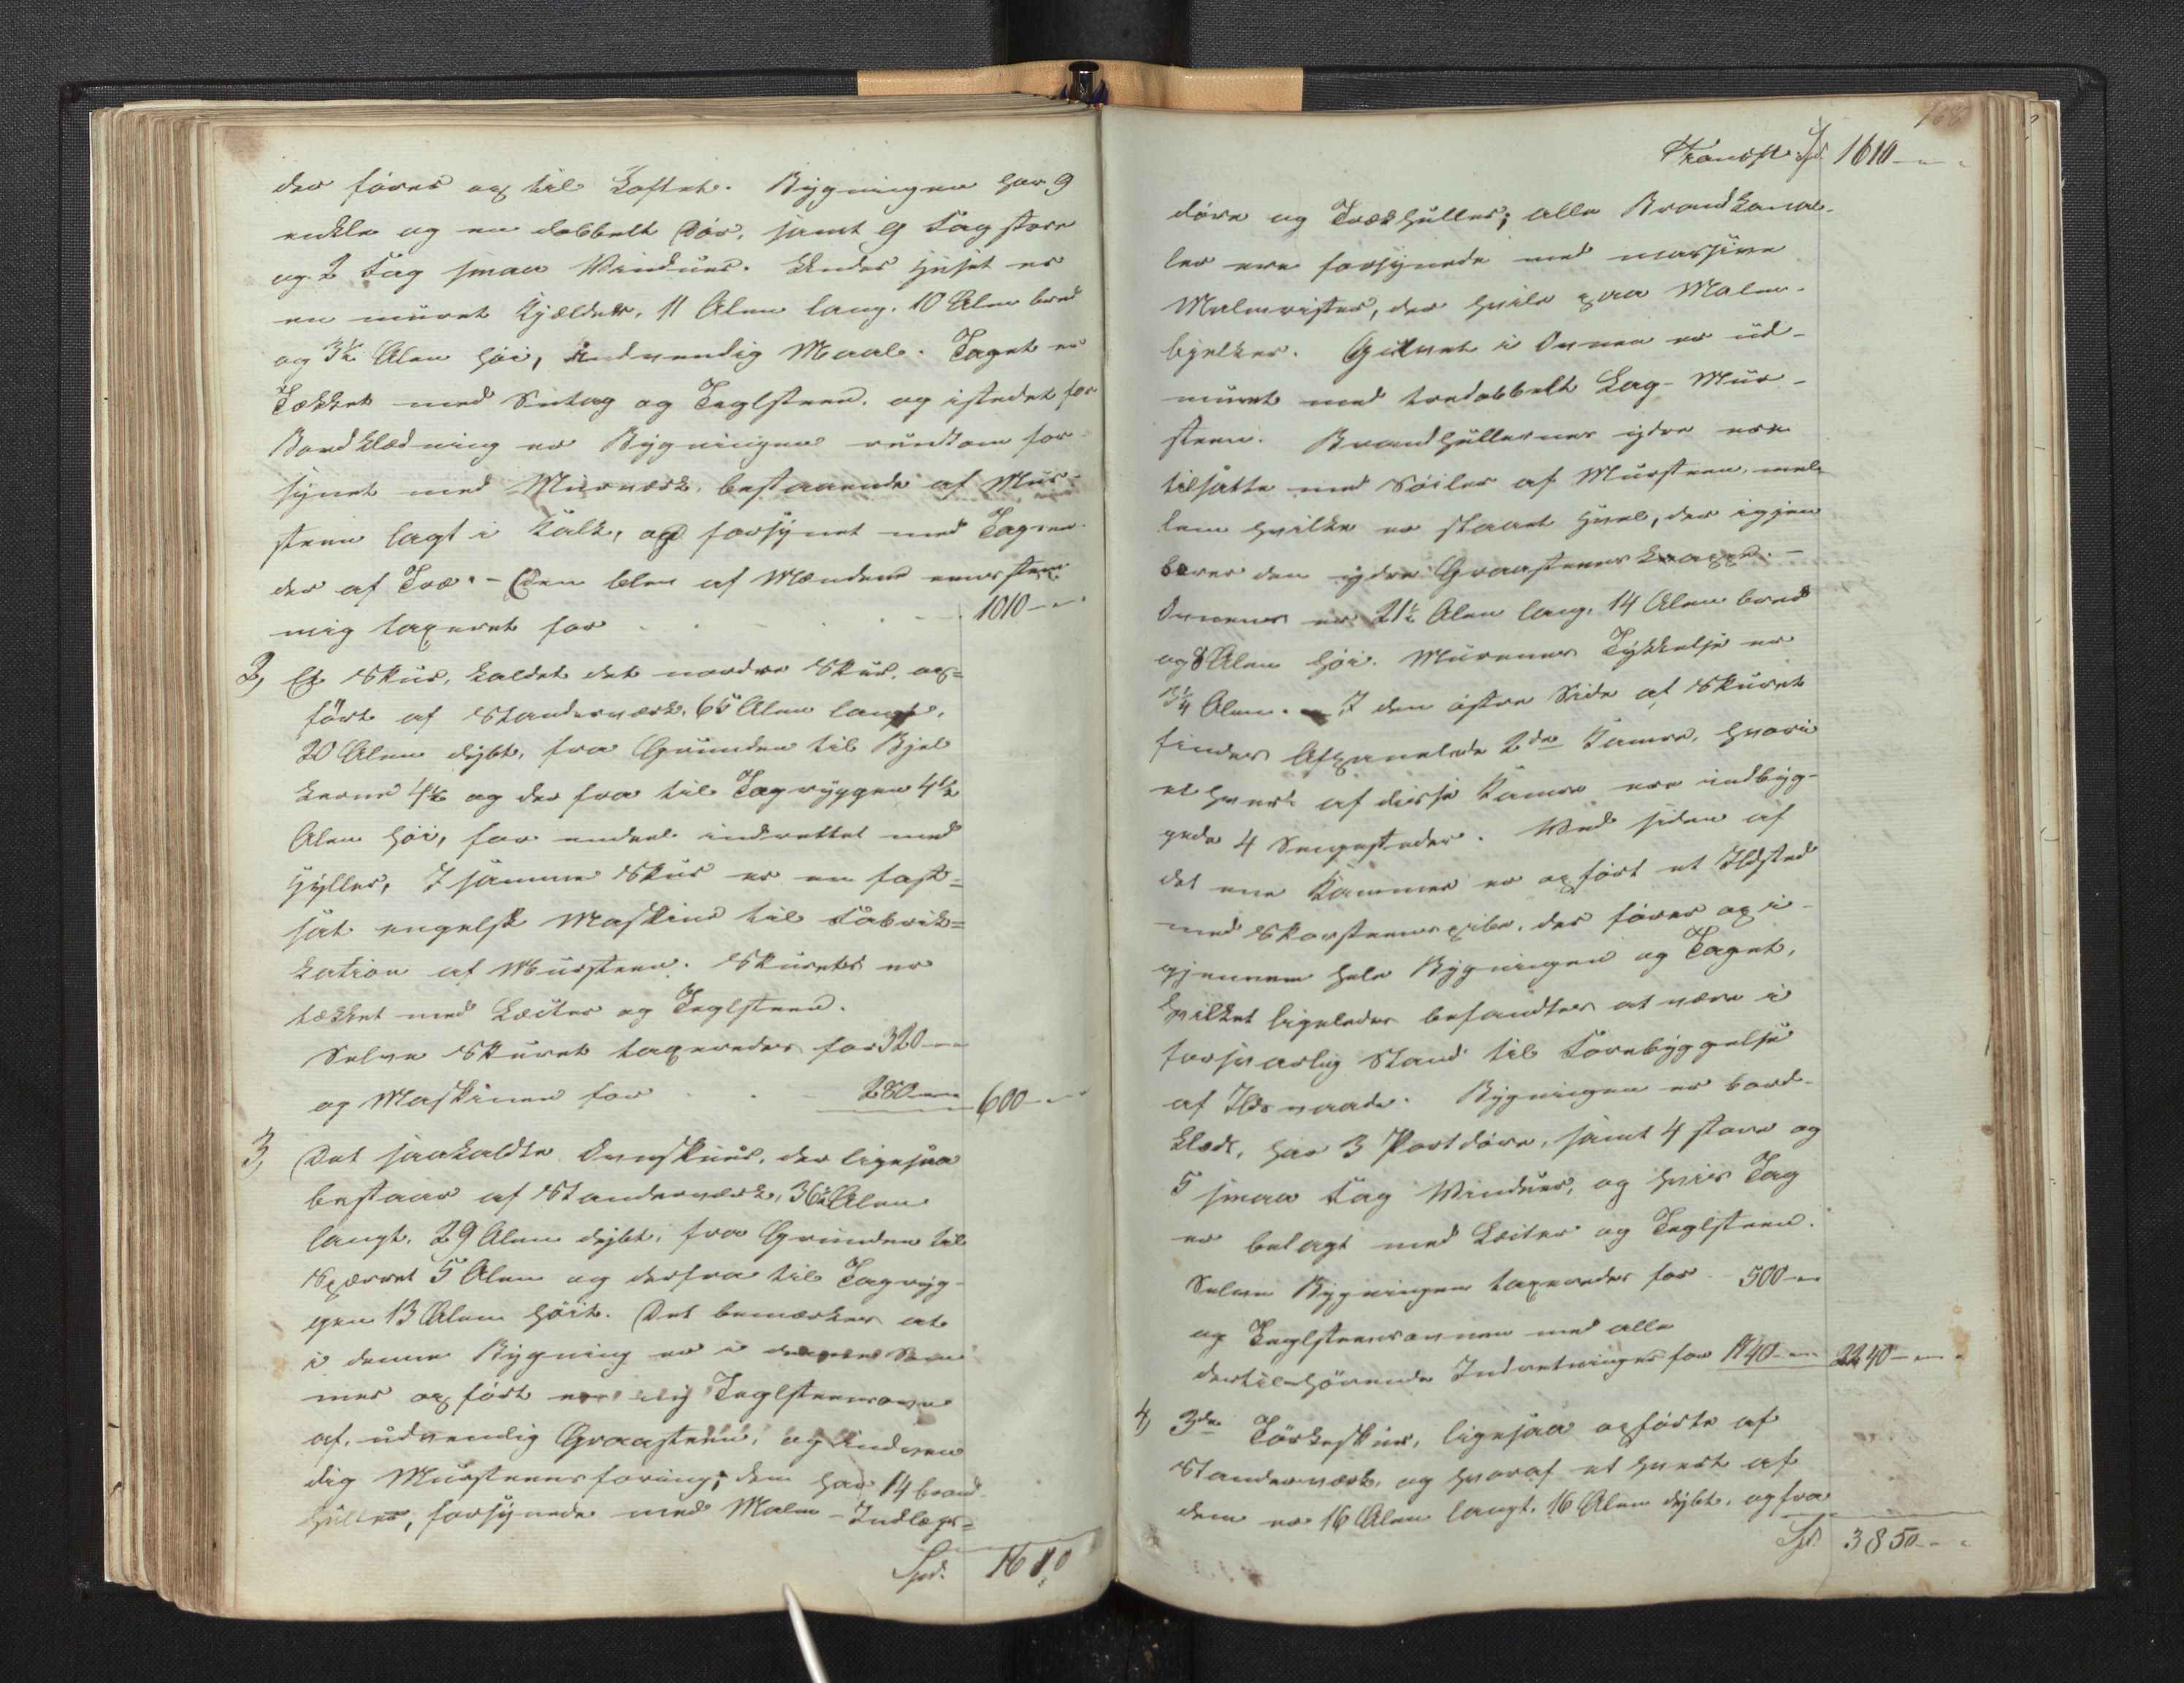 der føres op til Loftet. Bygningen har 9
enkle og en dobbelt Dør, samt 9 Fag store
og 2 Fag smaa Vinduer. Under Huset er
en muret Kjælder, 11 Alen lang, 10 Alen bred
og 3½ Alen høi, indvendig Maal. Taget er
Tækket med Sutag og Teglsteen, og istedet for
Bordklædning er Bygningen rundtom for-
synet med Murværk, bestaaende af Muur-
steen lagt i Kalk, og forsynet med Tagren-
der af Træ. - Den blev af Mændene eenstem-
mig taxeret for 1010 - -
2, Et Skuur, kaldet det nordre Skuur, op=
ført af Standerværk, 65 Alen langt,
20 Alen dybt, fra Grunden til Bjel
kerne 4½ og der fra til Tagryggen 4½
Alen høi, for endeel indrettet med
Hylder, I samme Skuur er en fast=
sat engelsk Maskine til Fabrik=
kation af Muursteen. Skuret er
tækket med Lægter og Teglsteen.
Selve Skuret taxeredes for 320 - -
og Maskinen for 280 - - 600 - -
3, Det saakaldte Ovnskuur, der ligesaa
bestaar af Standerværk, 36½ Alen
langt, 29 Alen dybt, fra Grunden til
Spærret 5 Alen og derfra til Tagryg-
gen 13 Alen høit. Det bemærkes at
i denne Bygning er i Som
mer opført Teglsteensovn
af, udvendig Graasteen, og indven
dig Muursteensforing; den har 14 brand-
huller, forsynede med Malm - Indlægs=
Spd. 1610
168
Transpt. Spd 1610 - -
døre og Trækhuller; alle Brandkana-
ler ere forsynede med massive
Malmrister, der hvile paa Malm-
bjelker. Gulvet i Ovnen er ud-
muret med tredobbelt Lag - Muur-
steen. Brandhullernes ydre ere
tilsatte med Søiler af Muursteen, mel
lem hvilke er slaaet Hvel, der igjen
bærer den ydre Graasteens
Ovnen er 21½ Alen lang, 14 Alen bred
og 8 Alen høi. Murenes Tykkelse er
Alen. - I den østre Side af Skuret
findes Afpanelede 2de Kamre, hvori
et hvert af disse Kamre ere indbyg-
gede 4 Sengesteder. Ved siden af
det ene Kammer er opført et Ildsted
med Skorsteenspibe, der føres op i-
gjennem hele Bygningen og Taget,
hvilket ligeledes befandtes at være i
forsvarlig Stand til Forebyggelse
af Ildsvaade. Bygningen er bord-
klædt, har 3 Portdøre, samt 4 store og
5 smaa Fag Vinduer, og hvis Tag
er belagt med Lægter og Teglsteen.
Selve Bygningen taxeredes for 500 - -
og Teglsteensovnen med alle
dertil hørende Indretninger for 1740 - - 2240 - -
4, 3de Tørkeskuur, ligesaa opførte af
Standerværk, og hvoraf et hvert af
dem er 16 Alen langt, 16 Alen dybt, og fra
Spd 3850 - -